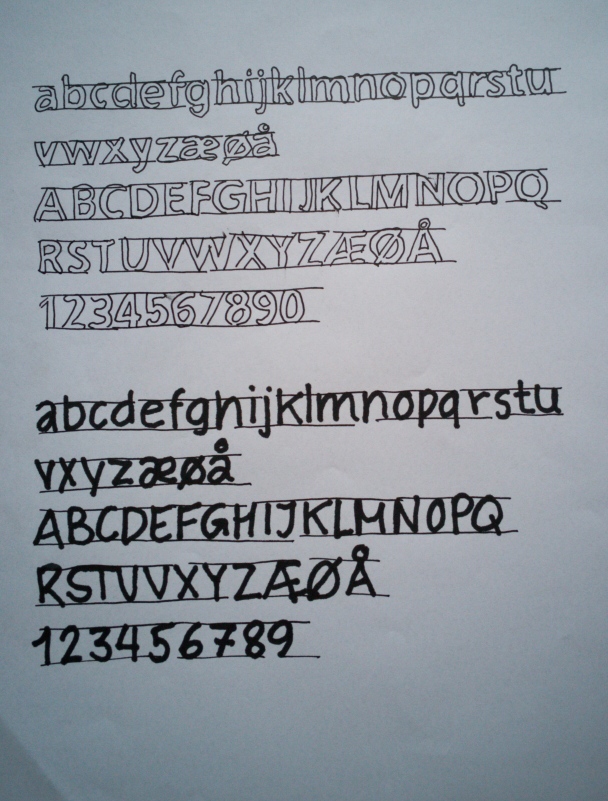 abcdefghijklmnopqrstu
vwxyzæøå
ABCDEFGHIJKLMNOPQ
RSTUVWXYZÆØÅ
1234567890
abcdefghijklmnopqrstu
vxyzæøå
ABCDEFGHIJKLMNOPQ
RSTUVXYZÆØÅ
123456789